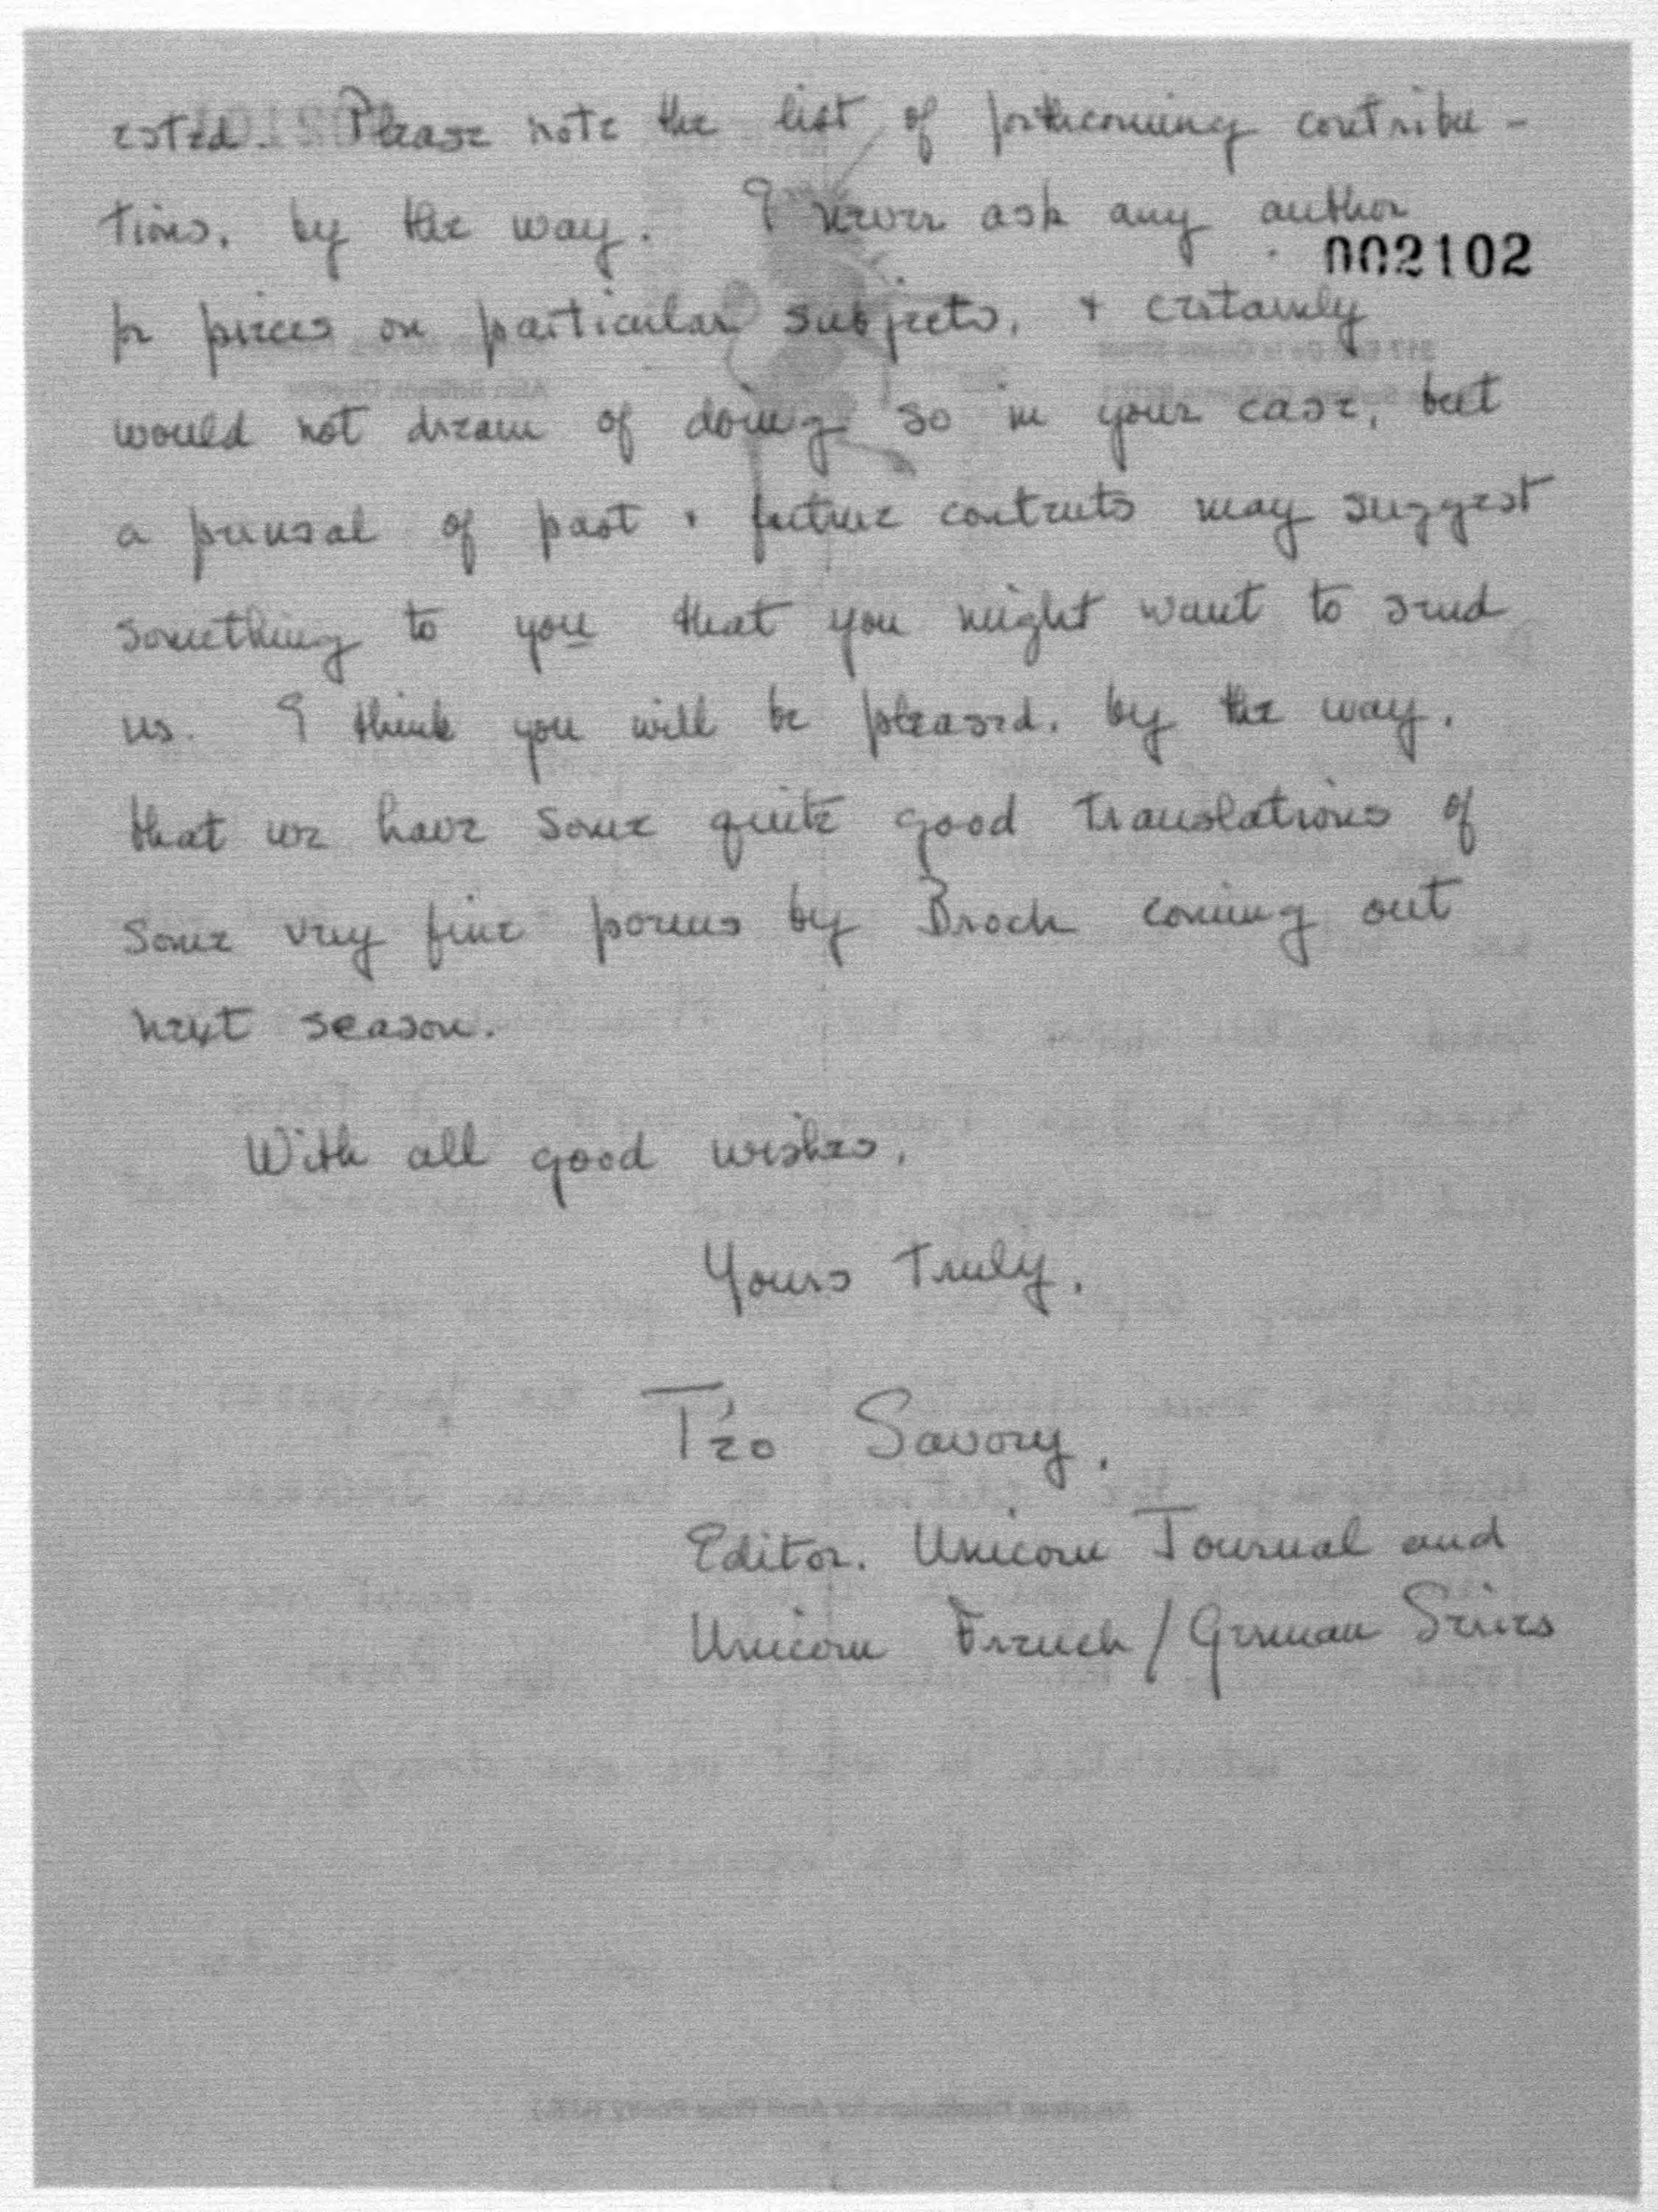 ested. Please note the list of forthcoming contribu-
tions, by the way. I never ask any author
002102
for pieces on particular subjects, + certainly
would not dream of doing so in your case, but
a perusal of past + future contents may suggest
something to you that you might want to send
us. I think you will be pleased, by the way,
that we have some quite good translations of
some very fine poems by Broch coming out
next season.
With all good wishes,
Yours truly,
Téo Savory.
Editor. Unicorn Journal and
Unicorn French/German Series